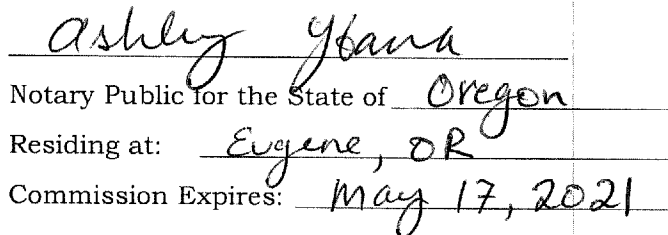 Ashley
Notary Public for the State of Oregon
Residing at: Eugene, OR
Commission Expires: May 17, 2021